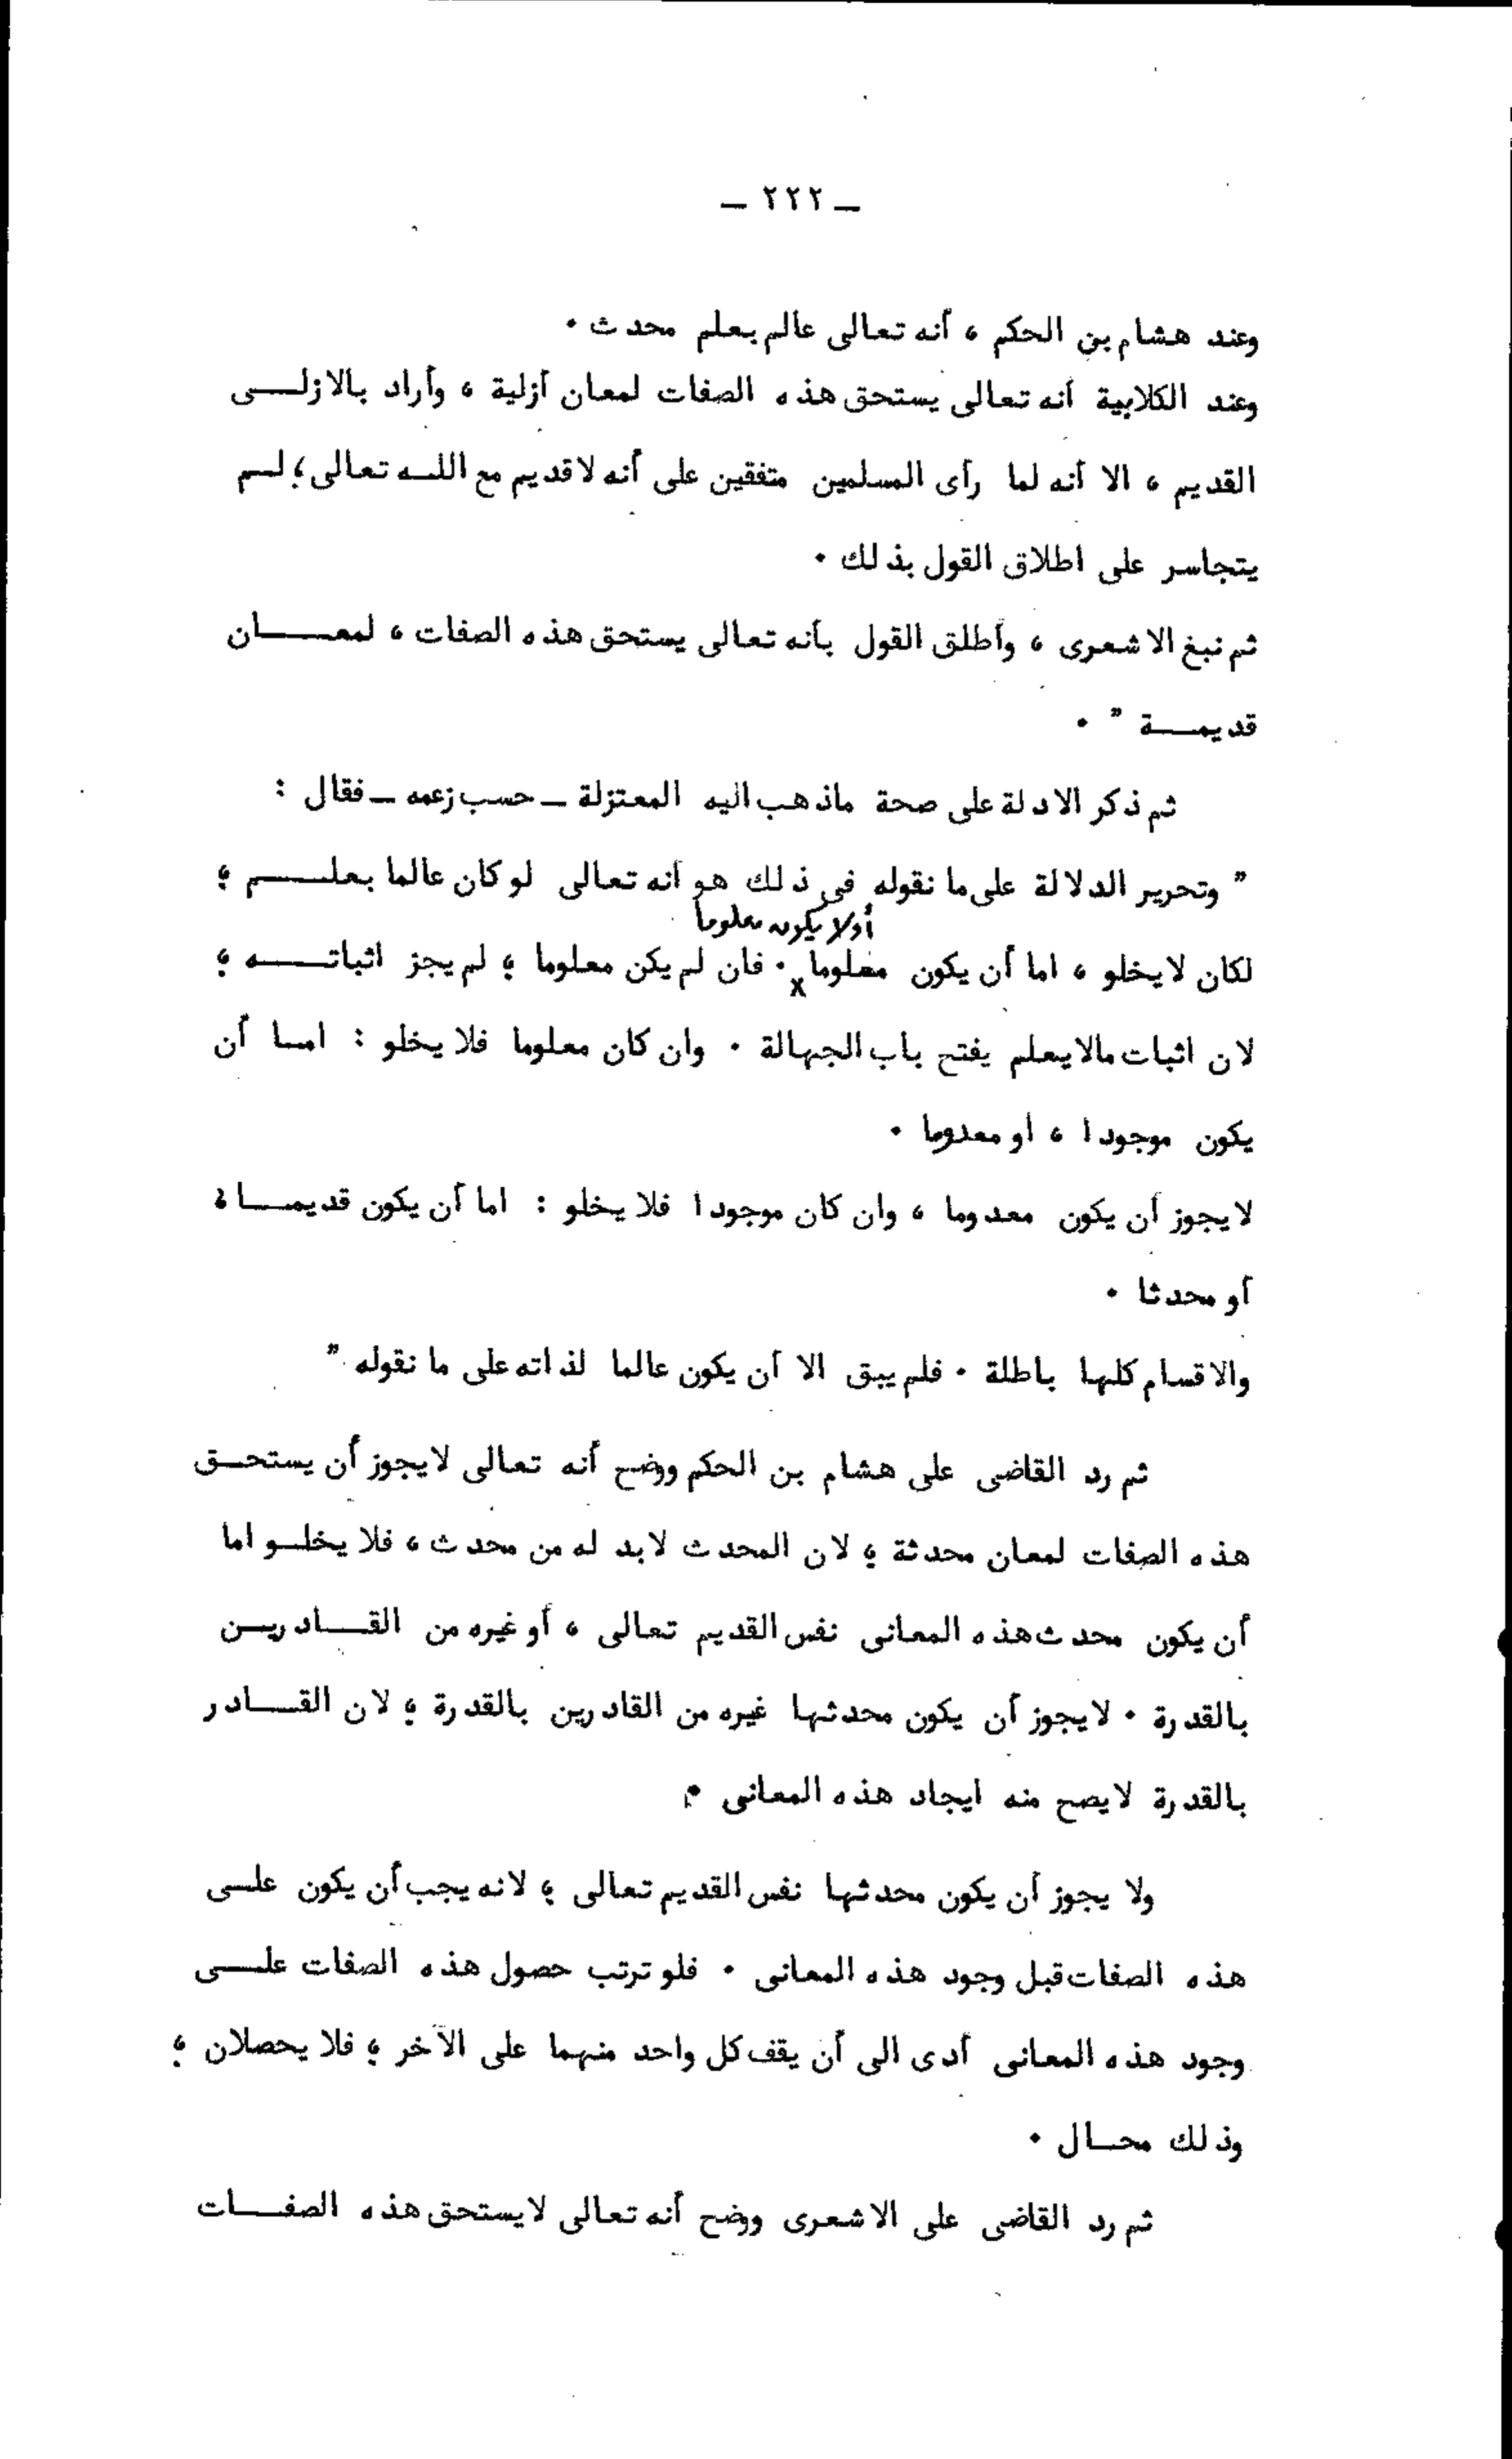 — ٢٢٢ —
وعند هشام بن الحكم ، أنه تعالى عالم بعلم محدث .
وعند الكلابية أنه تعالى يستحق هذه الصفات لمعان أزلية ، وأراد بالازلى
القديم ، الا أنه لما رأى المسلمين متفقين على أنه لا قديم مع الله تعالى ؛ لم
يتجاسر على اطلاق القول بذلك .
ثم نبغ الاشعرى ، وأطلق القول بأنه تعالى يستحق هذه الصفات ، لمعان
قديمة " .
ثم ذكر الادلة على صحة ماذهب اليه المعتزلة – حسب زعمه – فقال :
" وتحرير الدلالة على ما نقوله فى ذلك هو أنه تعالى لو كان عالما بعلم ؛
أولا يكون معلوما
لكان لا يخلو ، اما أن يكون معلوما x . فان لم يكن معلوما ؛ لم يجز اثباته ؛
لان اثبات مالا يعلم يفتح باب الجهالة . وان كان معلوما فلا يخلو : اما أن
يكون موجودا ، أو معدوما .
لا يجوز أن يكون معدوما ، وان كان موجودا فلا يخلو : اما أن يكون قديما ،
أو محدثا .
والاقسام كلها باطلة . فلم يبق الا أن يكون عالما لذاته على ما نقوله . "
ثم رد القاضى على هشام بن الحكم ووضح أنه تعالى لا يجوز أن يستحق
هذه الصفات لمعان محدثة ؛ لان المحدث لابد له من محدث ، فلا يخلو اما
أن يكون محدث هذه المعانى نفس القديم تعالى ، أو غيره من القادرين
بالقدرة . لا يجوز أن يكون محدثها غيره من القادرين بالقدرة ؛ لان القادر
بالقدرة لا يصح منه ايجاد هذه المعانى .
ولا يجوز أن يكون محدثها نفس القديم تعالى ؛ لانه يجب أن يكون على
هذه الصفات قبل وجود هذه المعانى . فلو ترتب حصول هذه الصفات على
وجود هذه المعانى أدى الى أن يقف كل واحد منهما على الآخر ؛ فلا يحصلان ؛
وذلك محال .
ثم رد القاضى على الاشعرى ووضح أنه تعالى لا يستحق هذه الصفات